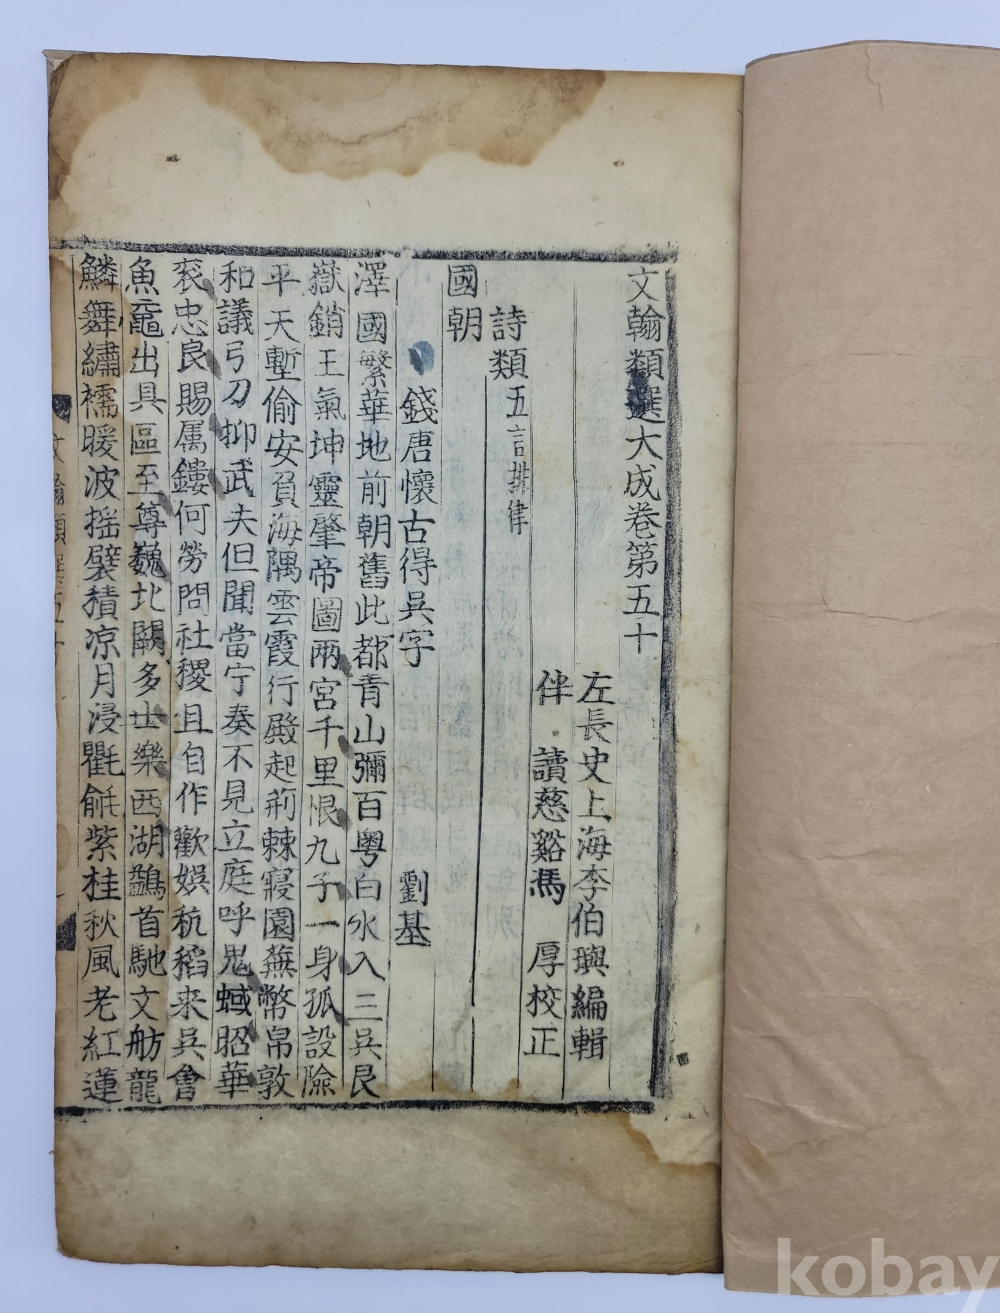 文翰類選大成卷第五十
左長史上海李伯璵編輯
伴讀慈谿馮厚校正
詩類五言排律
國朝
錢唐懷古得吳字 劉基
澤國繁華地前朝舊此都青山彌百粵白水入三吳艮
嶽銷王氣坤靈肇帝圖兩宮千里恨九子一身孤設險
平天塹偷安負海隅雲霞行殿起荊棘寢園蕪幣帛敦
和議弓刀抑武夫但聞當宁奏不見立庭呼鬼蜮昭華
袞忠良賜属鏤何勞問社稷且自作歡娛秔稻来吳會
魚黿出具區至尊巍北闕多士樂西湖鷁首馳文舫龍
鱗舞繡襦暖波搖襞積凉月浸氍毹紫桂秋風老紅蓮
文翰類選五十
kobay